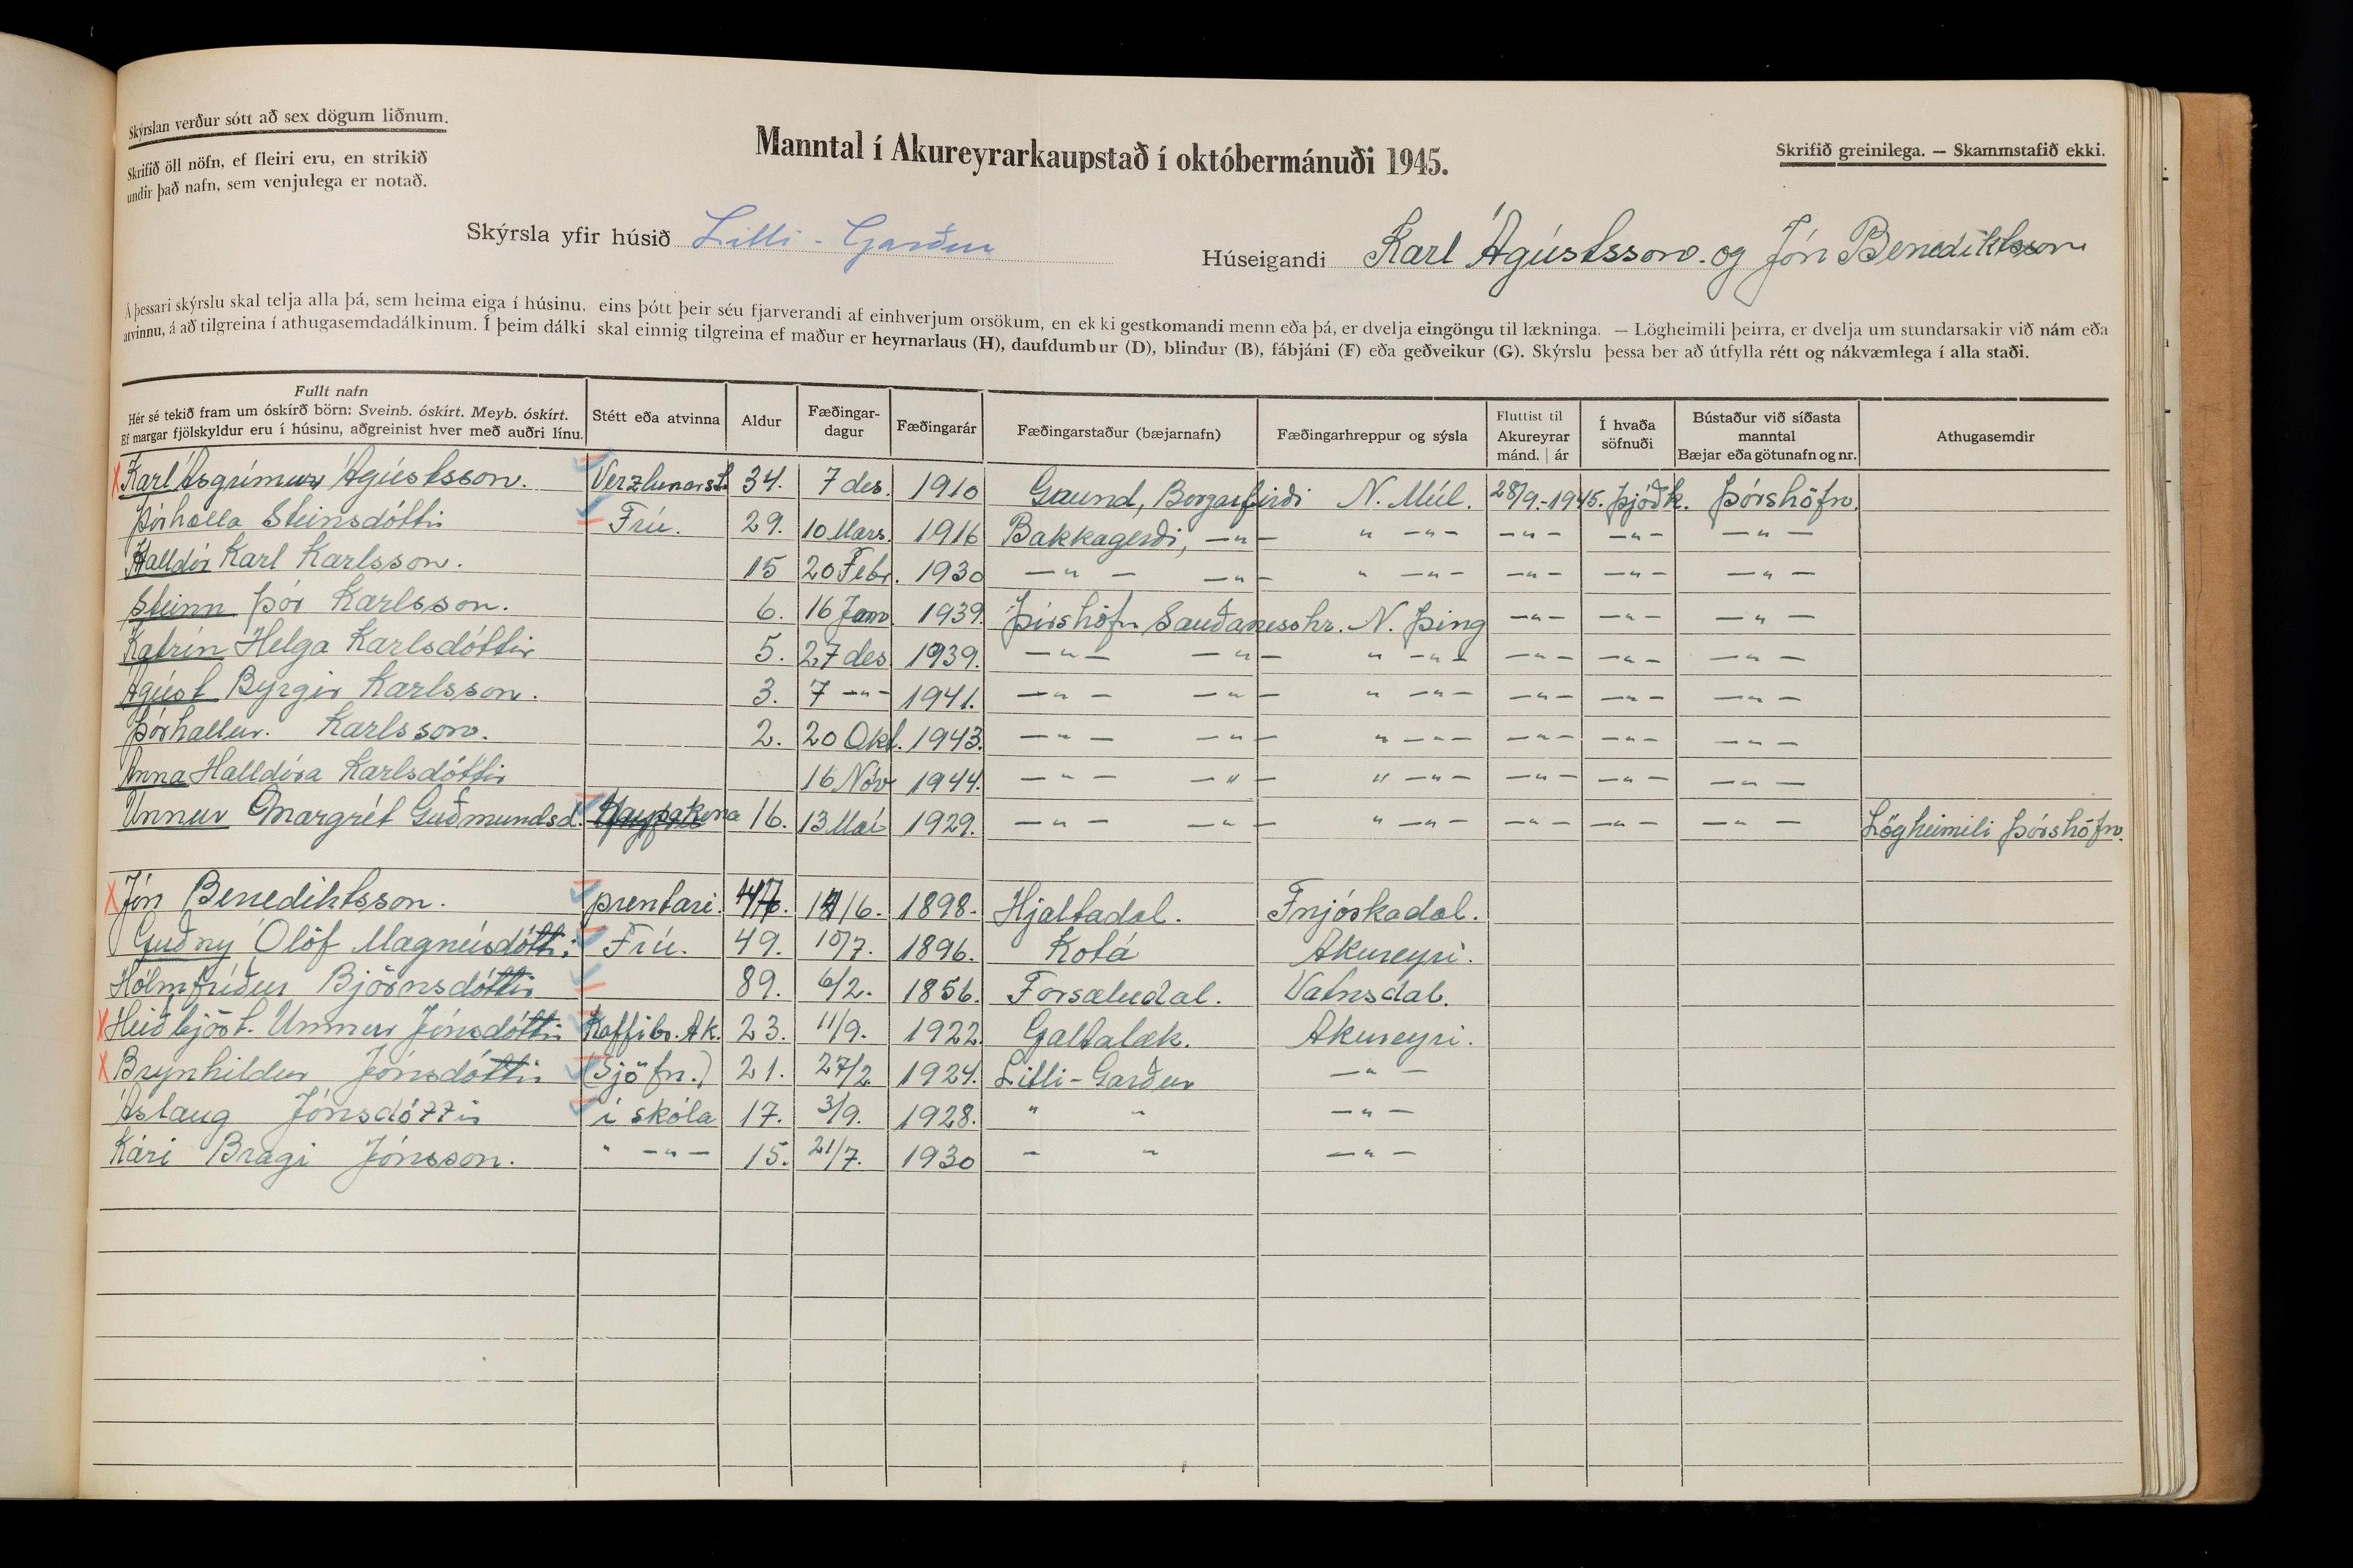 Skýrslan verður sótt að sex dögum liðnum.
Skrifið öll nöfn, ef fleiri eru, en strikið
undir það nafn, sem venjulega er notað.
Manntal í Akureyrarkaupstað í októbermánuði 1945.
Skrifið greinilega. — Skammstafið ekki.
Skýrsla yfir húsið Litli-Garður
Húseigandi Karl Ágústsson. og Jón Benediktsson
Á þessari skýrslu skal telja alla þá, sem heima eiga í húsinu, eins þótt þeir séu fjarverandi af einhverjum orsökum, en ekki gestkomandi menn eða þá, er dvelja eingöngu til lækninga. — Lögheimili þeirra, er dvelja um stundarsakir við nám eða
atvinnu, á að tilgreina í athugasemdadálkinum. Í þeim dálki skal einnig tilgreina ef maður er heyrnarlaus (H), daufdumbur (D), blindur (B), fábjáni (F) eða geðveikur (G). Skýrslu þessa ber að útfylla rétt og nákvæmlega í alla staði.
Fullt nafn
Hér sé tekið fram um óskírð börn: Sveinb. óskírt. Meyb. óskírt.
Ef margar fjölskyldur eru í húsinu, aðgreinist hver með auðri línu.
Stétt eða atvinna
Aldur
Fæðingar-
dagur
Fæðingarár
Fæðingarstaður (bæjarnafn)
Fæðingarhreppur og sýsla
Fluttist til
Akureyrar
mánd. | ár
Í hvaða
söfnuði
Bústaður við síðasta
manntal
Bæjar eða götunafn og nr.
Athugasemdir
X Karl Ásgrímur Ágústsson. Verzlunarst. 34. 7 des. 1910 Grund, Borgarfirði N. Múl. 28/9.-1945. Þjóðk. Þórshöfn.
Þórhalla Steinsdóttir Frú. 29. 10 Mars. 1916 Bakkagerði, —"— " —"— —"— —"— —"—
Halldór Karl Karlsson. 15 20 Febr. 1930 —"— —"— " —"— —"— —"— —"—
Steinn Þór Karlsson. 6. 16 Jan 1939. Þórshöfn Sauðaneshr. N. Þing —"— —"— —"—
Katrín Helga Karlsdóttir 5. 27 des 1939. —"— —"— " —"— —"— —"— —"—
Ágúst Byrgir Karlsson. 3. 7 —"— 1941. —"— —"— " —"— —"— —"— —"—
Þórhallur. Karlsson. 2. 20 Okt. 1943. —"— —"— " —"— —"— —"— —"—
Anna Halldóra Karlsdóttir 16 Nóv 1944. —"— —"— " —"— —"— —"— —"—
Unnur Margrét Guðmundsd. 16. 13 Maí 1929. —"— —"— " —"— —"— —"— —"— Lögheimili Þórshöfn.
X Jón Benediktsson. prentari. /6. 1898. Hjaltadal. Fnjóskadal.
Guðný Ólöf Magnúsdóttir Frú. 49. 10/7. 1896. Kotá Akureyri.
Hólmfríður Björnsdóttir 89. 6/2. 1856. Forsæludal. Vatnsdal.
X Heiðbjört. Unnur Jónsdóttir Kaffibr. Ak. 23. 11/9. 1922. Galtalæk. Akureyri.
X Brynhildur Jónsdóttir (Sjöfn.) 21. 27/2 1924. Litli-Garður —"—
Áslaug Jónsdóttir í skóla 17. 3/9. 1928. " " —"—
Kári Bragi Jónsson. " —"— 15. 21/7. 1930 " " —"—